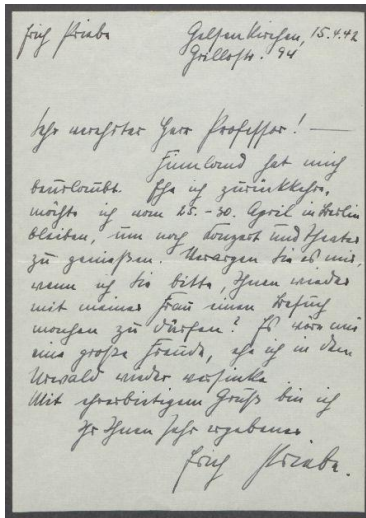 Erich Kriebe
Gelsenkirchen, 15.4.42
Grillostr. 94
Sehr verehrter Herr Professor! —
Finnland hat mich
beurlaubt. Ehe ich zurückkehre,
möchte ich vom 25.-30. April in Berlin
bleiben, um noch Konzert und Theater
zu genießen. Verargen Sie es mir,
wenn ich Sie bitte, Ihnen wieder
mit meiner Frau einen Besuch
machen zu dürfen? Es wäre mir
eine große Freude, ehe ich in dem
Urwald wieder versinke.
Mit ehrerbietigem Gruß bin ich
Ihr Ihnen sehr ergebener
Erich Kriebe.